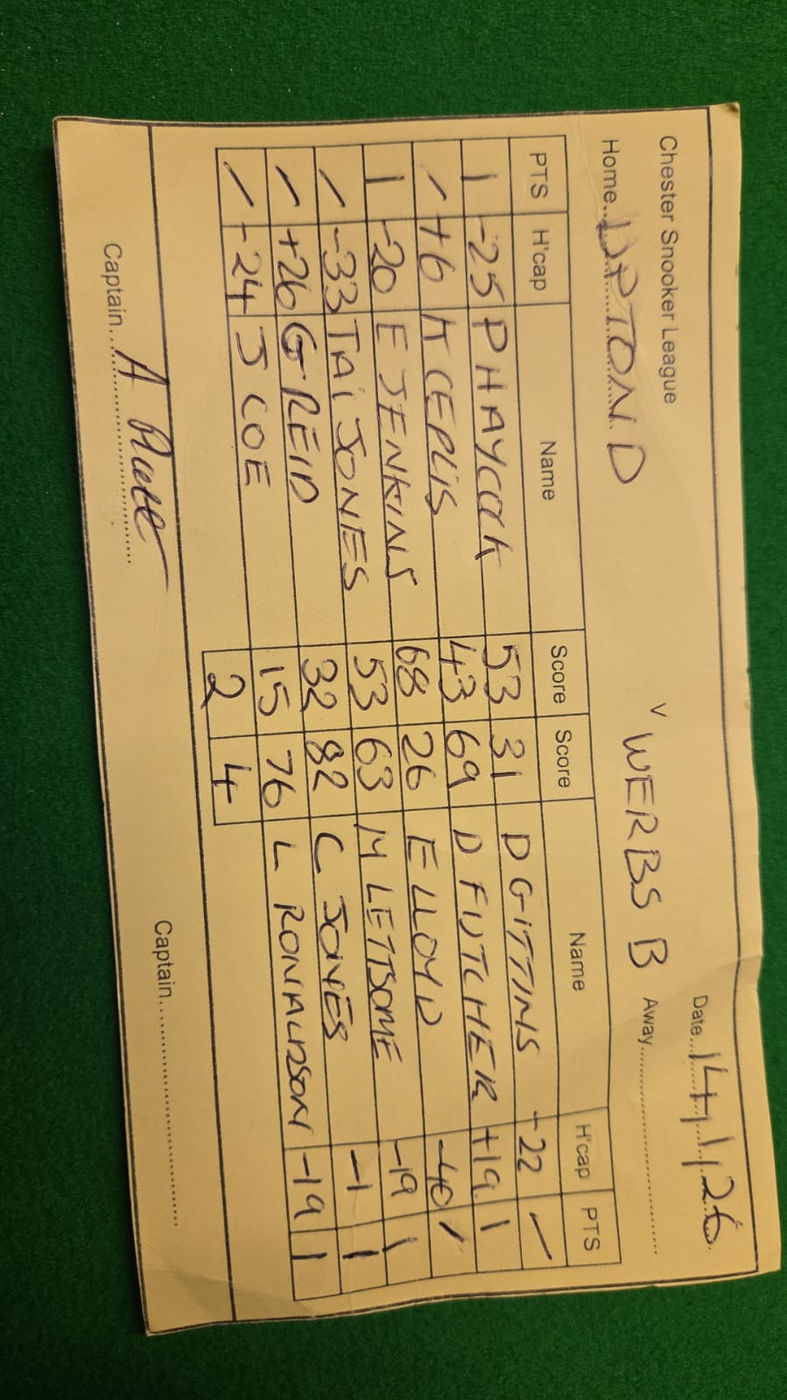 Chester Snooker League Date 14,1,26
Home UPTON D v WERBS B Away
PTS H'cap Name Score Score Name H'cap PTS
1 -25 P HAYCOCK 53 31 D GITTINS -22 /
/ +6 A 43 69 D FUTCHER +19 1
1 -20 E JENKINS 68 26 E LLOYD -40 /
/ -33 TAI JONES 53 63 M LETTSOME -19 1
/ +26 G REID 32 82 C JONES -1 1
/ -24 J COE 15 76 L RONALDSON -19 1
2 4
Captain A Captain